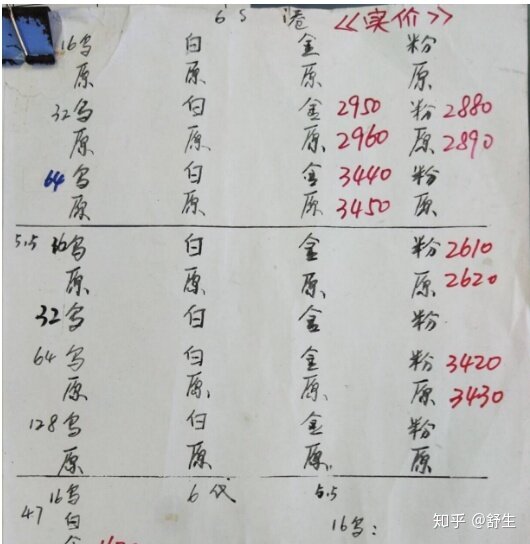 6S 港 《实价》
16乌 白 金 粉
原 原 原 原
32乌 白 金2950 粉2880
原 原 原2960 原2890
64乌 白 金3440 粉
原 原 原3450 原
5.5 16乌 白 金 粉2610
原 原 原 原2620
32乌 白 金 粉
64乌 白 金 粉3420
原 原 原 原3430
128乌 白 金 粉
原 原 原 原
16乌 6代 5.5
47 白 16乌:
知乎 @舒生